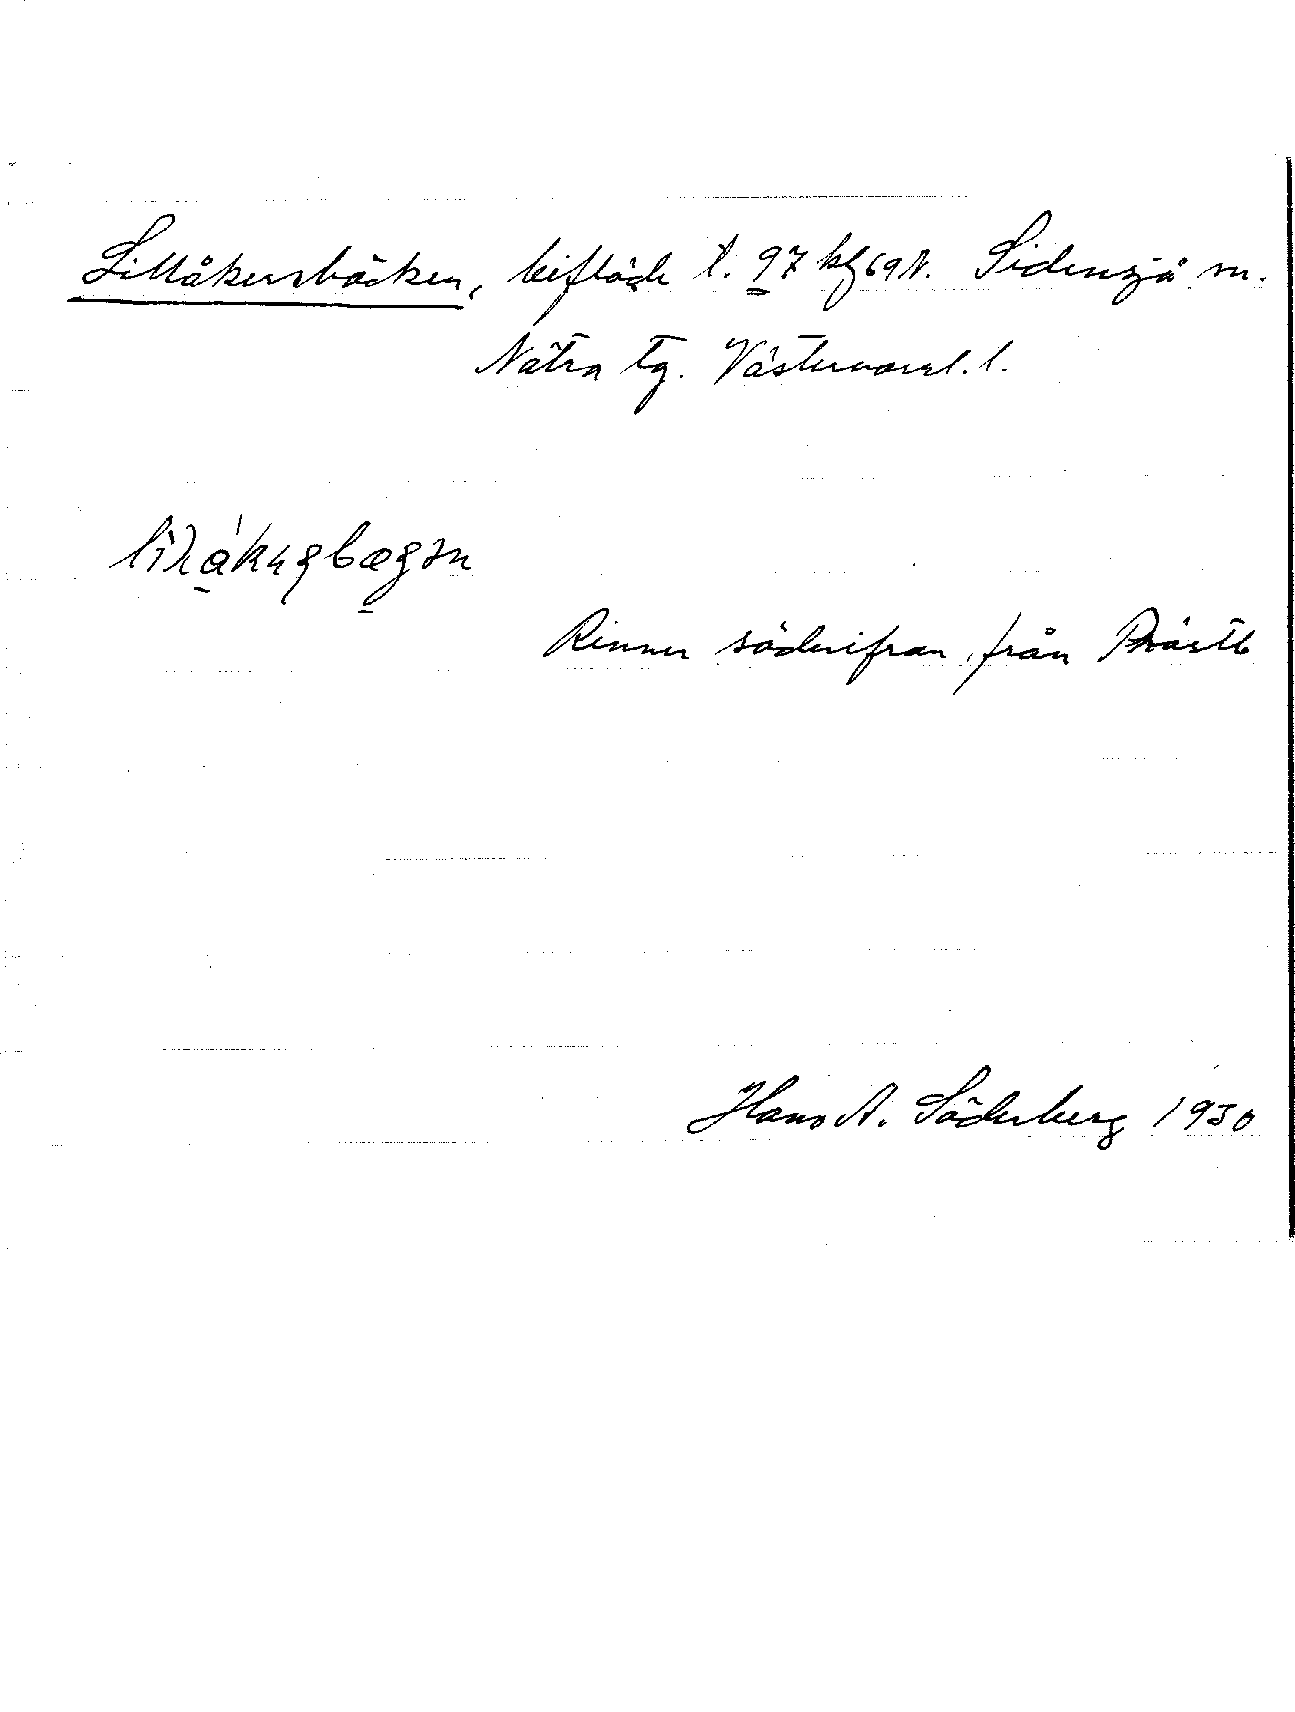 Lillåkersbäcken, biflöde t. 97 kbl 69N. Sidensjö sn.
Nätra tg. Västernorrl. l.
Rinner söderifrån, från Prästb
Hans A. Söderberg 1930